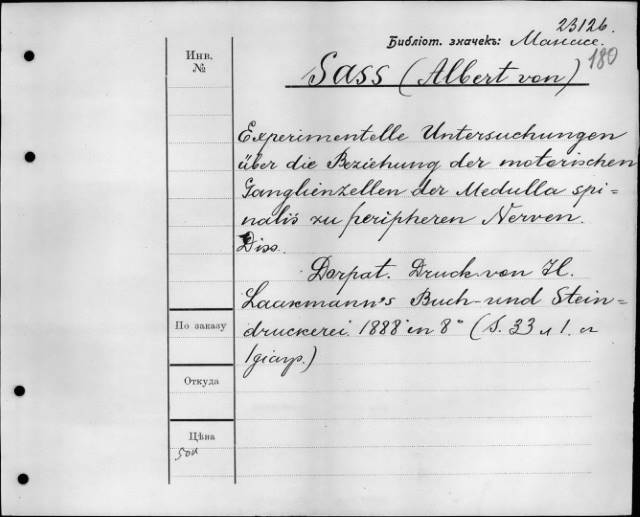 23126.
Библіот. значекъ:
180
Инв.
№
Sass (Albert von)
Experimentelle Untersuchungen
über die Beziehung der motorischen
Ganglienzellen der Medulla spi=
nalis zu peripheren Nerven.
Diss.
Dorpat. Druck von H.
Laakmann's Buch- und Stein=
druckerei. 1888 in 8° (S. 33 л 1. и
1 діагр.)
По заказу
Откуда
Цѣна